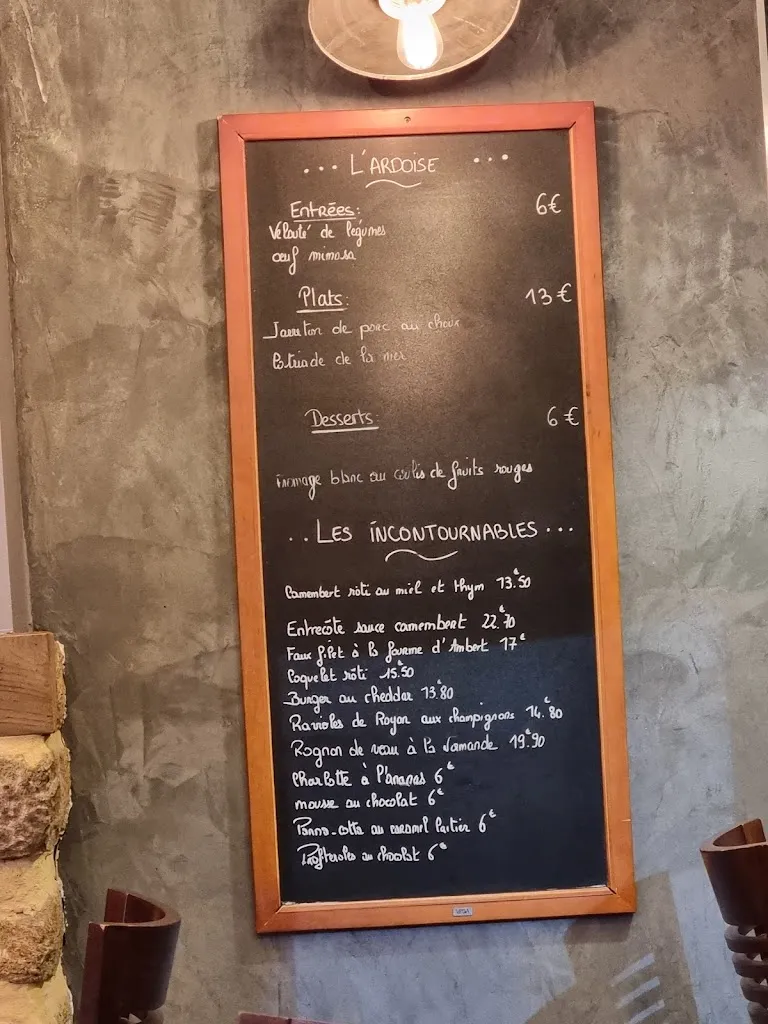 ... L'ARDOISE ...
Entrées: 6€
Velouté de légumes
œuf mimosa
Plats: 13€
Jarreton de porc au choux
Cotriade de la mer
Desserts: 6€
Fromage blanc au coulis de fruits rouges
.. LES INCONTOURNABLES ...
Camembert rôti au miel et thym 13.50€
Entrecôte sauce camembert 22.70€
Faux filet à la fourme d'Ambert 17€
Coquelet rôti 15.50€
Burger au cheddar 13.80€
Ravioles de Royan aux champignons 14.80€
Rognon de veau à la normande 19.90€
Charlotte à l'ananas 6€
mousse au chocolat 6€
Panna-cotta au caramel laitier 6€
Profiteroles au chocolat 6€